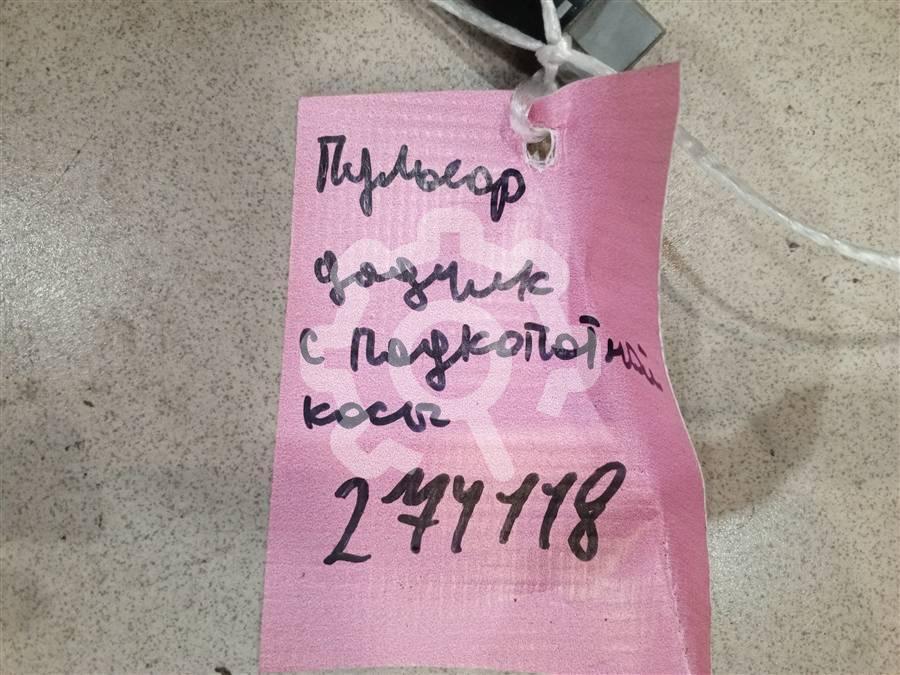 Пульсар
дадчик
с подкопотной
косы
274118